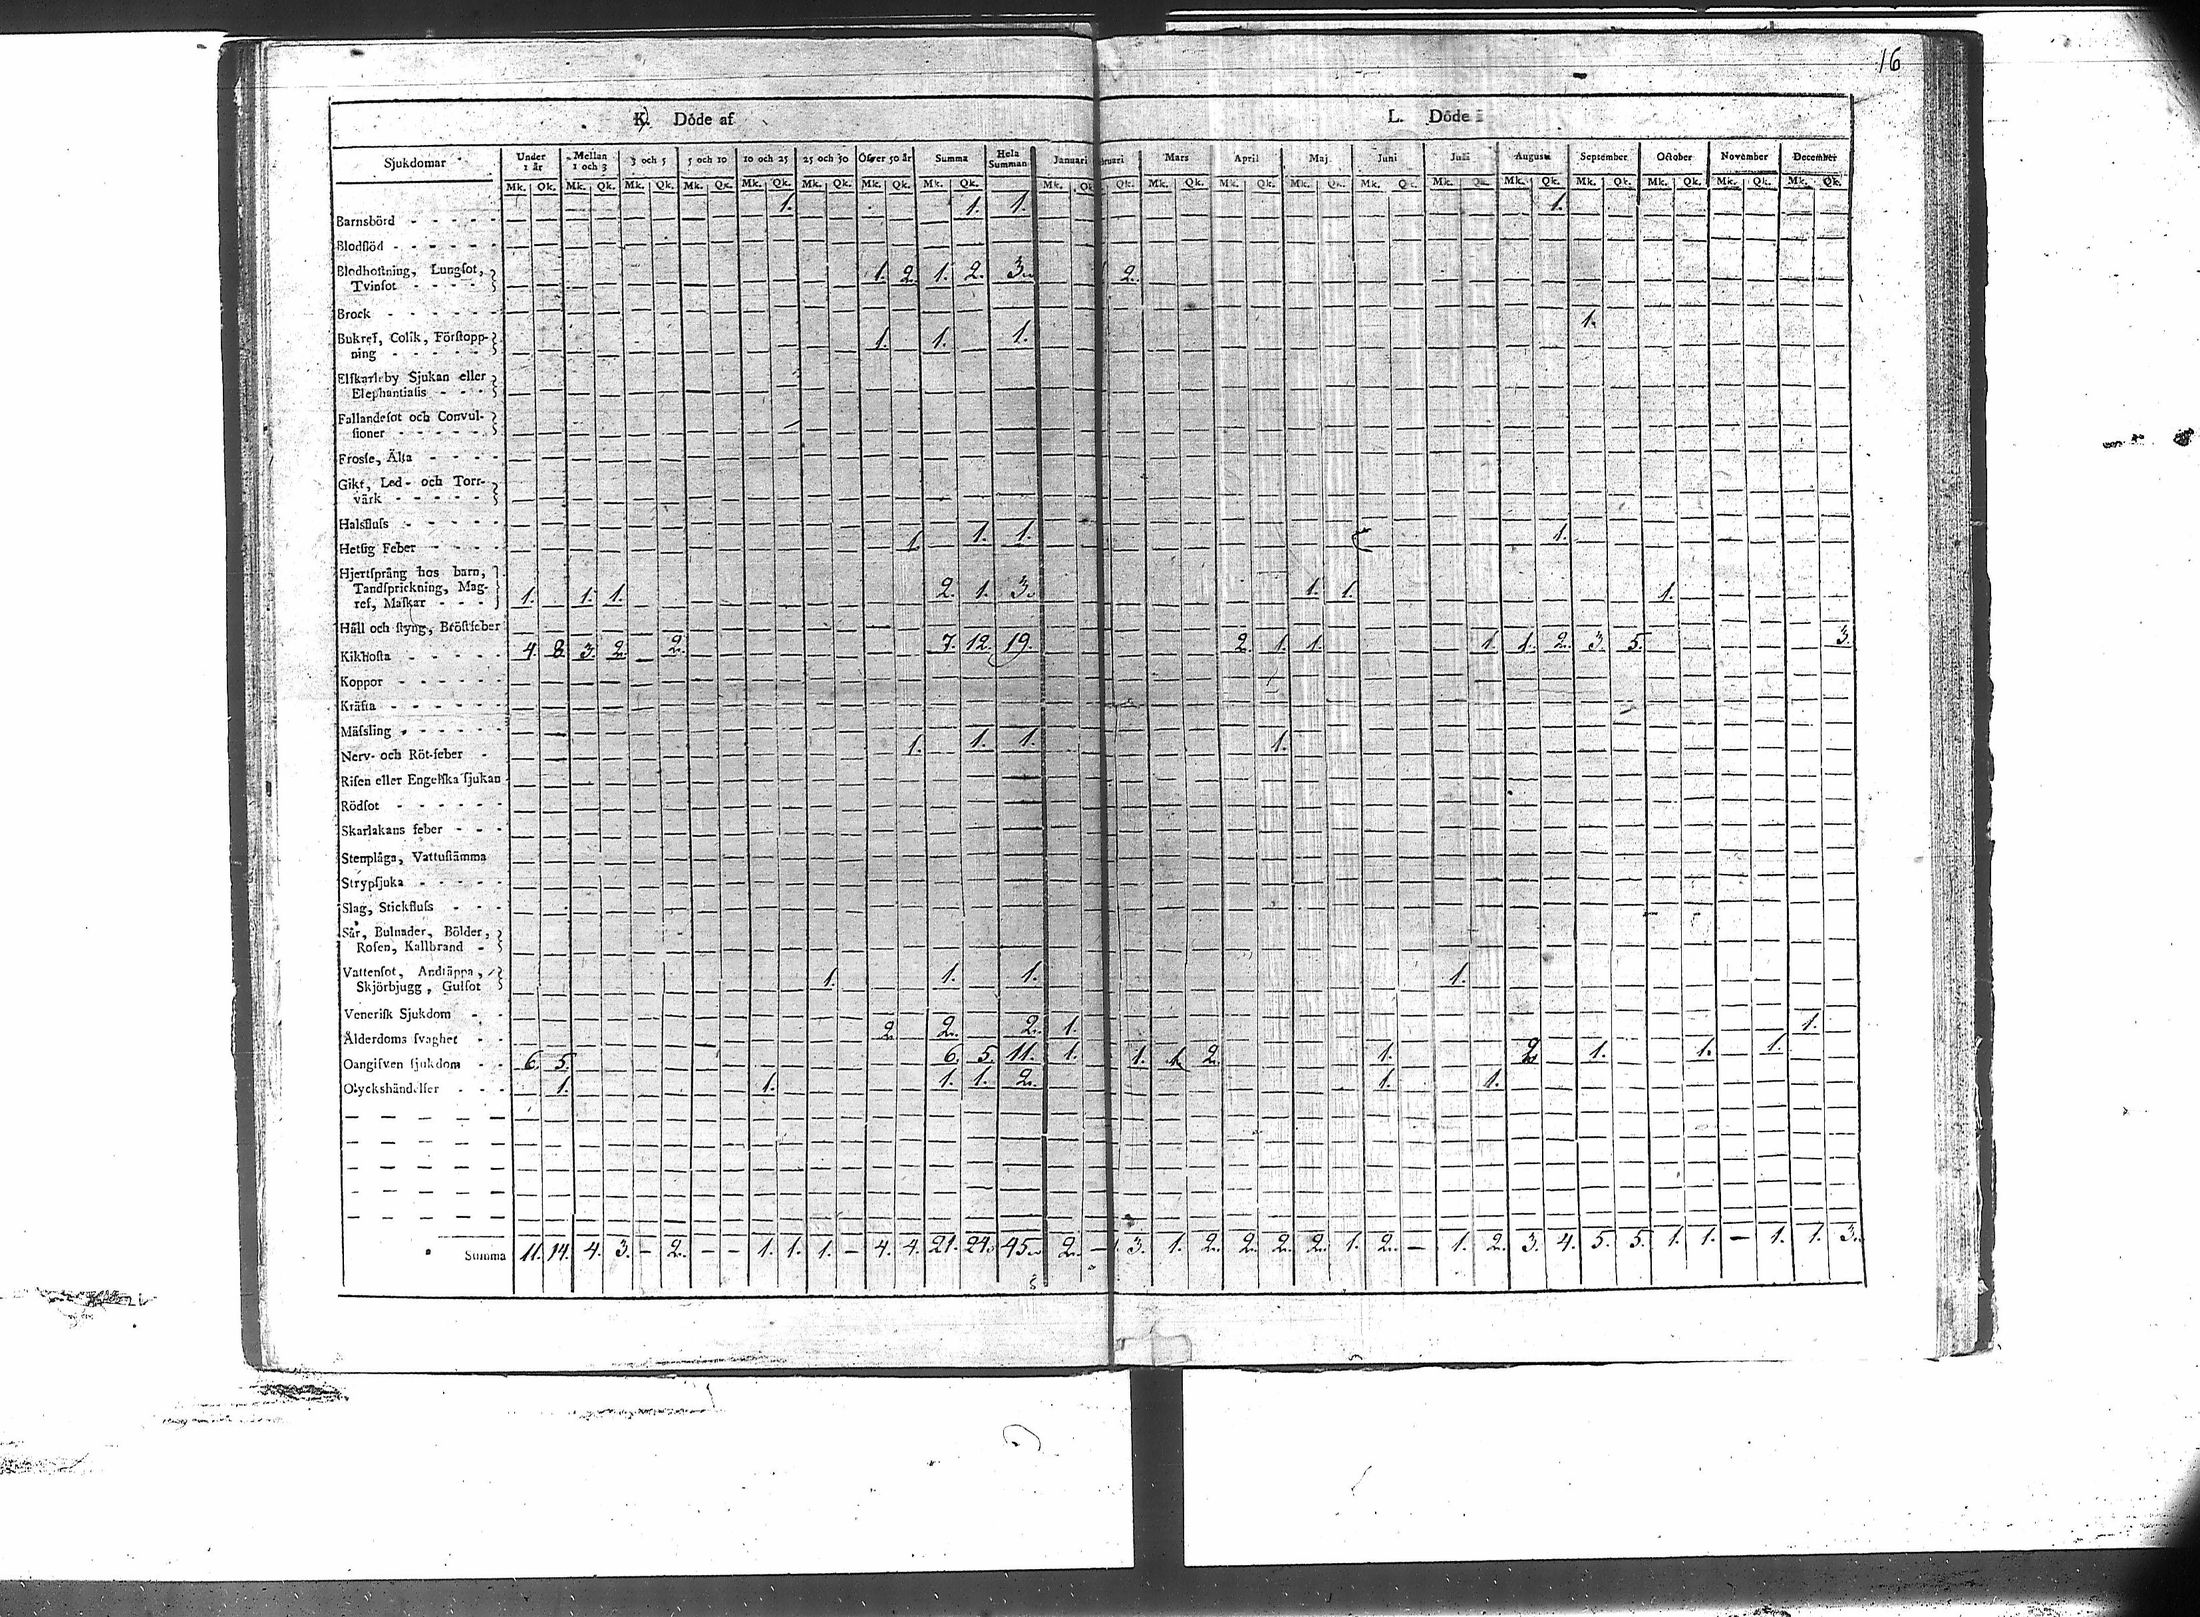 16
K. Döde af
L. Döde i
Sjukdomar Under 1 år Mellan 1 och 3 3 och 5 5 och 10 10 och 25 25 och 50 Öfver 50 år Summa Hela Summan Januari bruari Mars April Maj Juni Juli Augusti September October November December
Mk. Qk. Mk. Qk. Mk. Qk. Mk. Qk. Mk. Qk. Mk. Qk. Mk. Qk. Mk. Qk. Mk. Qk. Qk. Mk. Qk. Mk. Qk. Mk. Qk. Mk. Qk. Mk. Qk. Mk. Qk. Mk. Qk. Mk. Qk. Mk. Qk. Mk. Qk.
Barnsbörd - - - - - 1. 1. 1. 1.
Blodflöd - - - - - -
Blodhoſtning, Lungſot,
Tvinſot - - - - 1. 2. 1. 2. 3. 2.
Brock - - - - - -
Bukref, Colik, Förſtopp-
ning - - - - - 1. 1. 1. 1.
Elſkarleby Sjukan eller
Elephantiaſis - - -
Fallandeſot och Convul-
ſioner - - - - -
Froſſe, Älta - - - -
Gikt, Led- och Torr-
värk - - - - -
Halsfluſs - - - - -
Hetſig Feber - - - - 1 1. 1. 1.
Hjertſprång hos barn,
Tandſprickning, Mag-
ref, Maſkar - - - 1. 1. 1. 2. 1. 3. 1. 1. 1.
Håll och ſtyng, Bröſtfeber
Kikhoſta - - - - - 4. 8. 3. 2. 2. 7. 12. 19. 2. 1. 1. 1. 1. 2. 3. 5. 3.
Koppor - - - - - -
Kräfta - - - - - -
Mäſsling - - - - - -
Nerv- och Röt-feber - 1. 1. 1. 1.
Riſen eller Engelſka ſjukan
Rödſot - - - - - -
Skarlakans feber - - -
Stenplåga, Vattuſtämma
Strypſjuka - - - - -
Slag, Stickfluſs - - -
Sår, Bulnader, Bölder,
Roſen, Kallbrand -
Vattenſot, Andtäppa,
Skjörbjugg, Gulſot 1. 1. 1. 1.
Veneriſk Sjukdom - -
Ålderdoms ſvaghet - - 2. 2. 2. 1. 1.
Oangifven ſjukdom - - 6. 5. 6. 5. 11. 1. 1. 1. 2. 1. 2. 1. 1. 1.
Olyckshändelſer - - - 1. 1. 1. 1. 2. 1. 1.
Summa 11. 14. 4. 3. - 2. - - 1. 1. 1. - 4. 4. 21. 24. 45. 2. - 3. 1. 2. 2. 2. 2. 1. 2. - 1. 2. 3. 4. 5. 5. 1. 1. - 1. 1. 3.